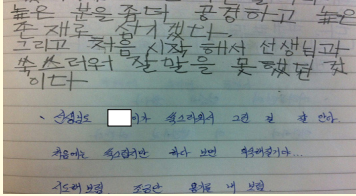 높은 분을 좁다. 공정하고 높은
존재로
그리고 처음 시작해서 선생님과
쑥쓰러워 잘 말을 못 했던 것
이다
선생님도 이가 쑥스러워서 그런 걸 잘 안다.
처음에는 쑥스럽지만 하다 보면 익숙해질거야...
시도해 보렴 조금만 용기를 내 보렴